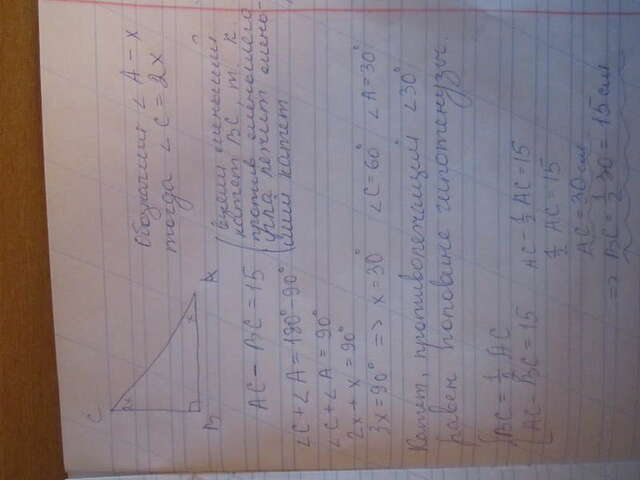 C
2x
B
x
A
Обозначим ∠A - x
тогда ∠C = 2x
AC - BC = 15
(взяли меньший
катет BC, т. к.
против меньшего
угла лежит мень-
ший катет
∠C+∠A = 180°-90°
∠C+∠A = 90°
2x + x = 90°
3x = 90° => x = 30° ∠C = 60° ∠A = 30°
Катет, противолежащий ∠30°
равен половине гипотенузы.
{BC = 1/2 AC
{AC - BC = 15
AC - 1/2 AC = 15
1/2 AC = 15
AC = 30 см
=> BC = 1/2 30 = 15 см